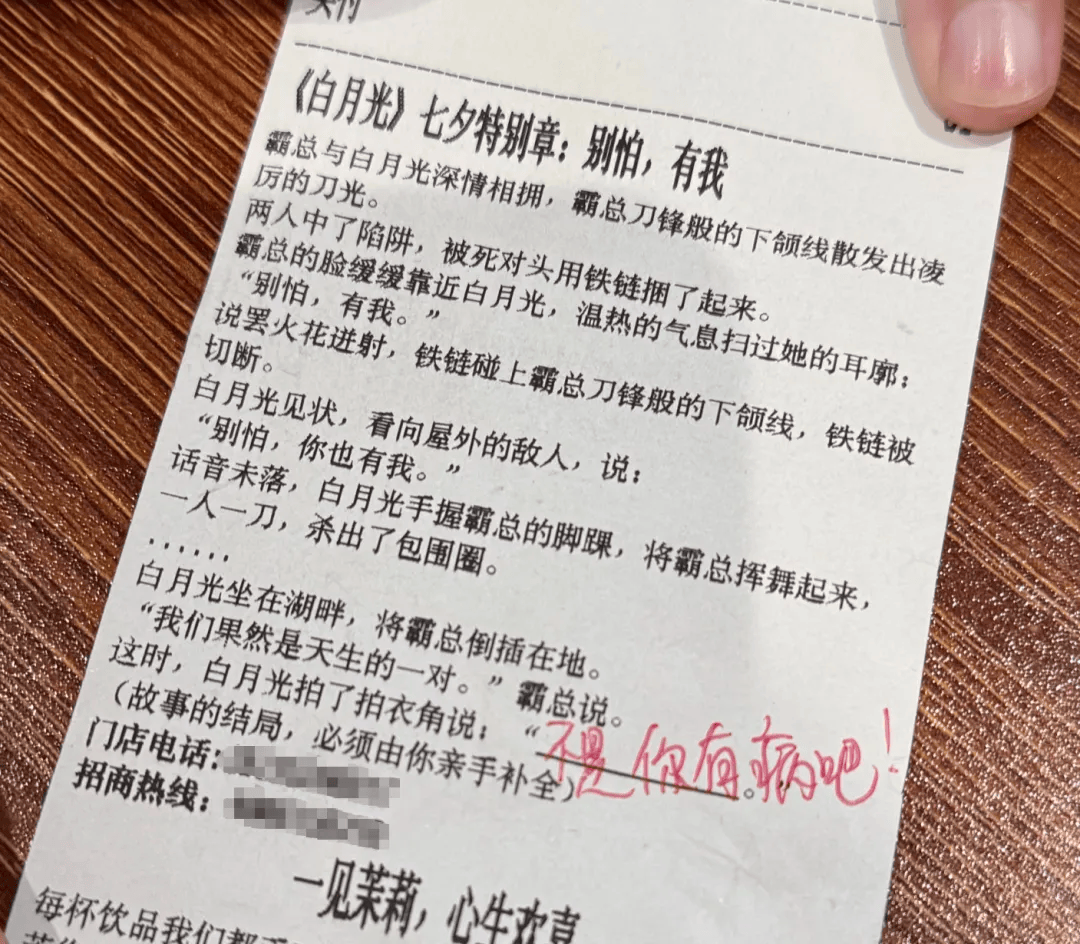 《白月光》七夕特别章：别怕，有我
霸总与白月光深情相拥，霸总刀锋般的下颌线散发出凌
厉的刀光。
两人中了陷阱，被死对头用铁链捆了起来。
霸总的脸缓缓靠近白月光，温热的气息扫过她的耳廓：
“别怕，有我。”
说罢火花迸射，铁链碰上霸总刀锋般的下颌线，铁链被
切断。
白月光见状，看向屋外的敌人，说：
“别怕，你也有我。”
话音未落，白月光手握霸总的脚踝，将霸总挥舞起来，
一人一刀，杀出了包围圈。
······
白月光坐在湖畔，将霸总倒插在地。
“我们果然是天生的一对。”霸总说。
这时，白月光拍了拍衣角说：“不是你有病吧！。”
（故事的结局，必须由你亲手补全）
门店电话：
招商热线：
一见茉莉，心生欢喜
每杯饮品我们都